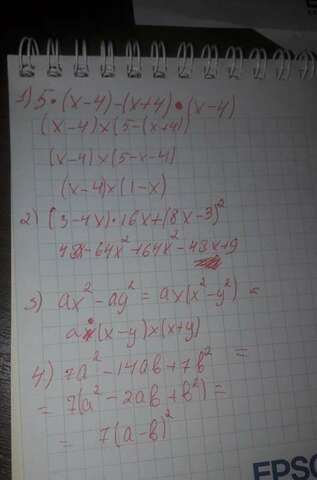 1) 5•(x-4)-(x+4)•(x-4)
(x-4)×(5-(x+4)
(x-4)×(5-x-4)
(x-4)×(1-x)
2) (3-4x)•16x+(8x-3)²
48x-64x²+64x²-48x+9
3) ax²-ay²=ax(x²-y²)=
a×(x-y)×(x+y)
4) 7a²-14ab+7b² =
=7(a²-2ab+b²)=
= 7(a-b)²
EPSO